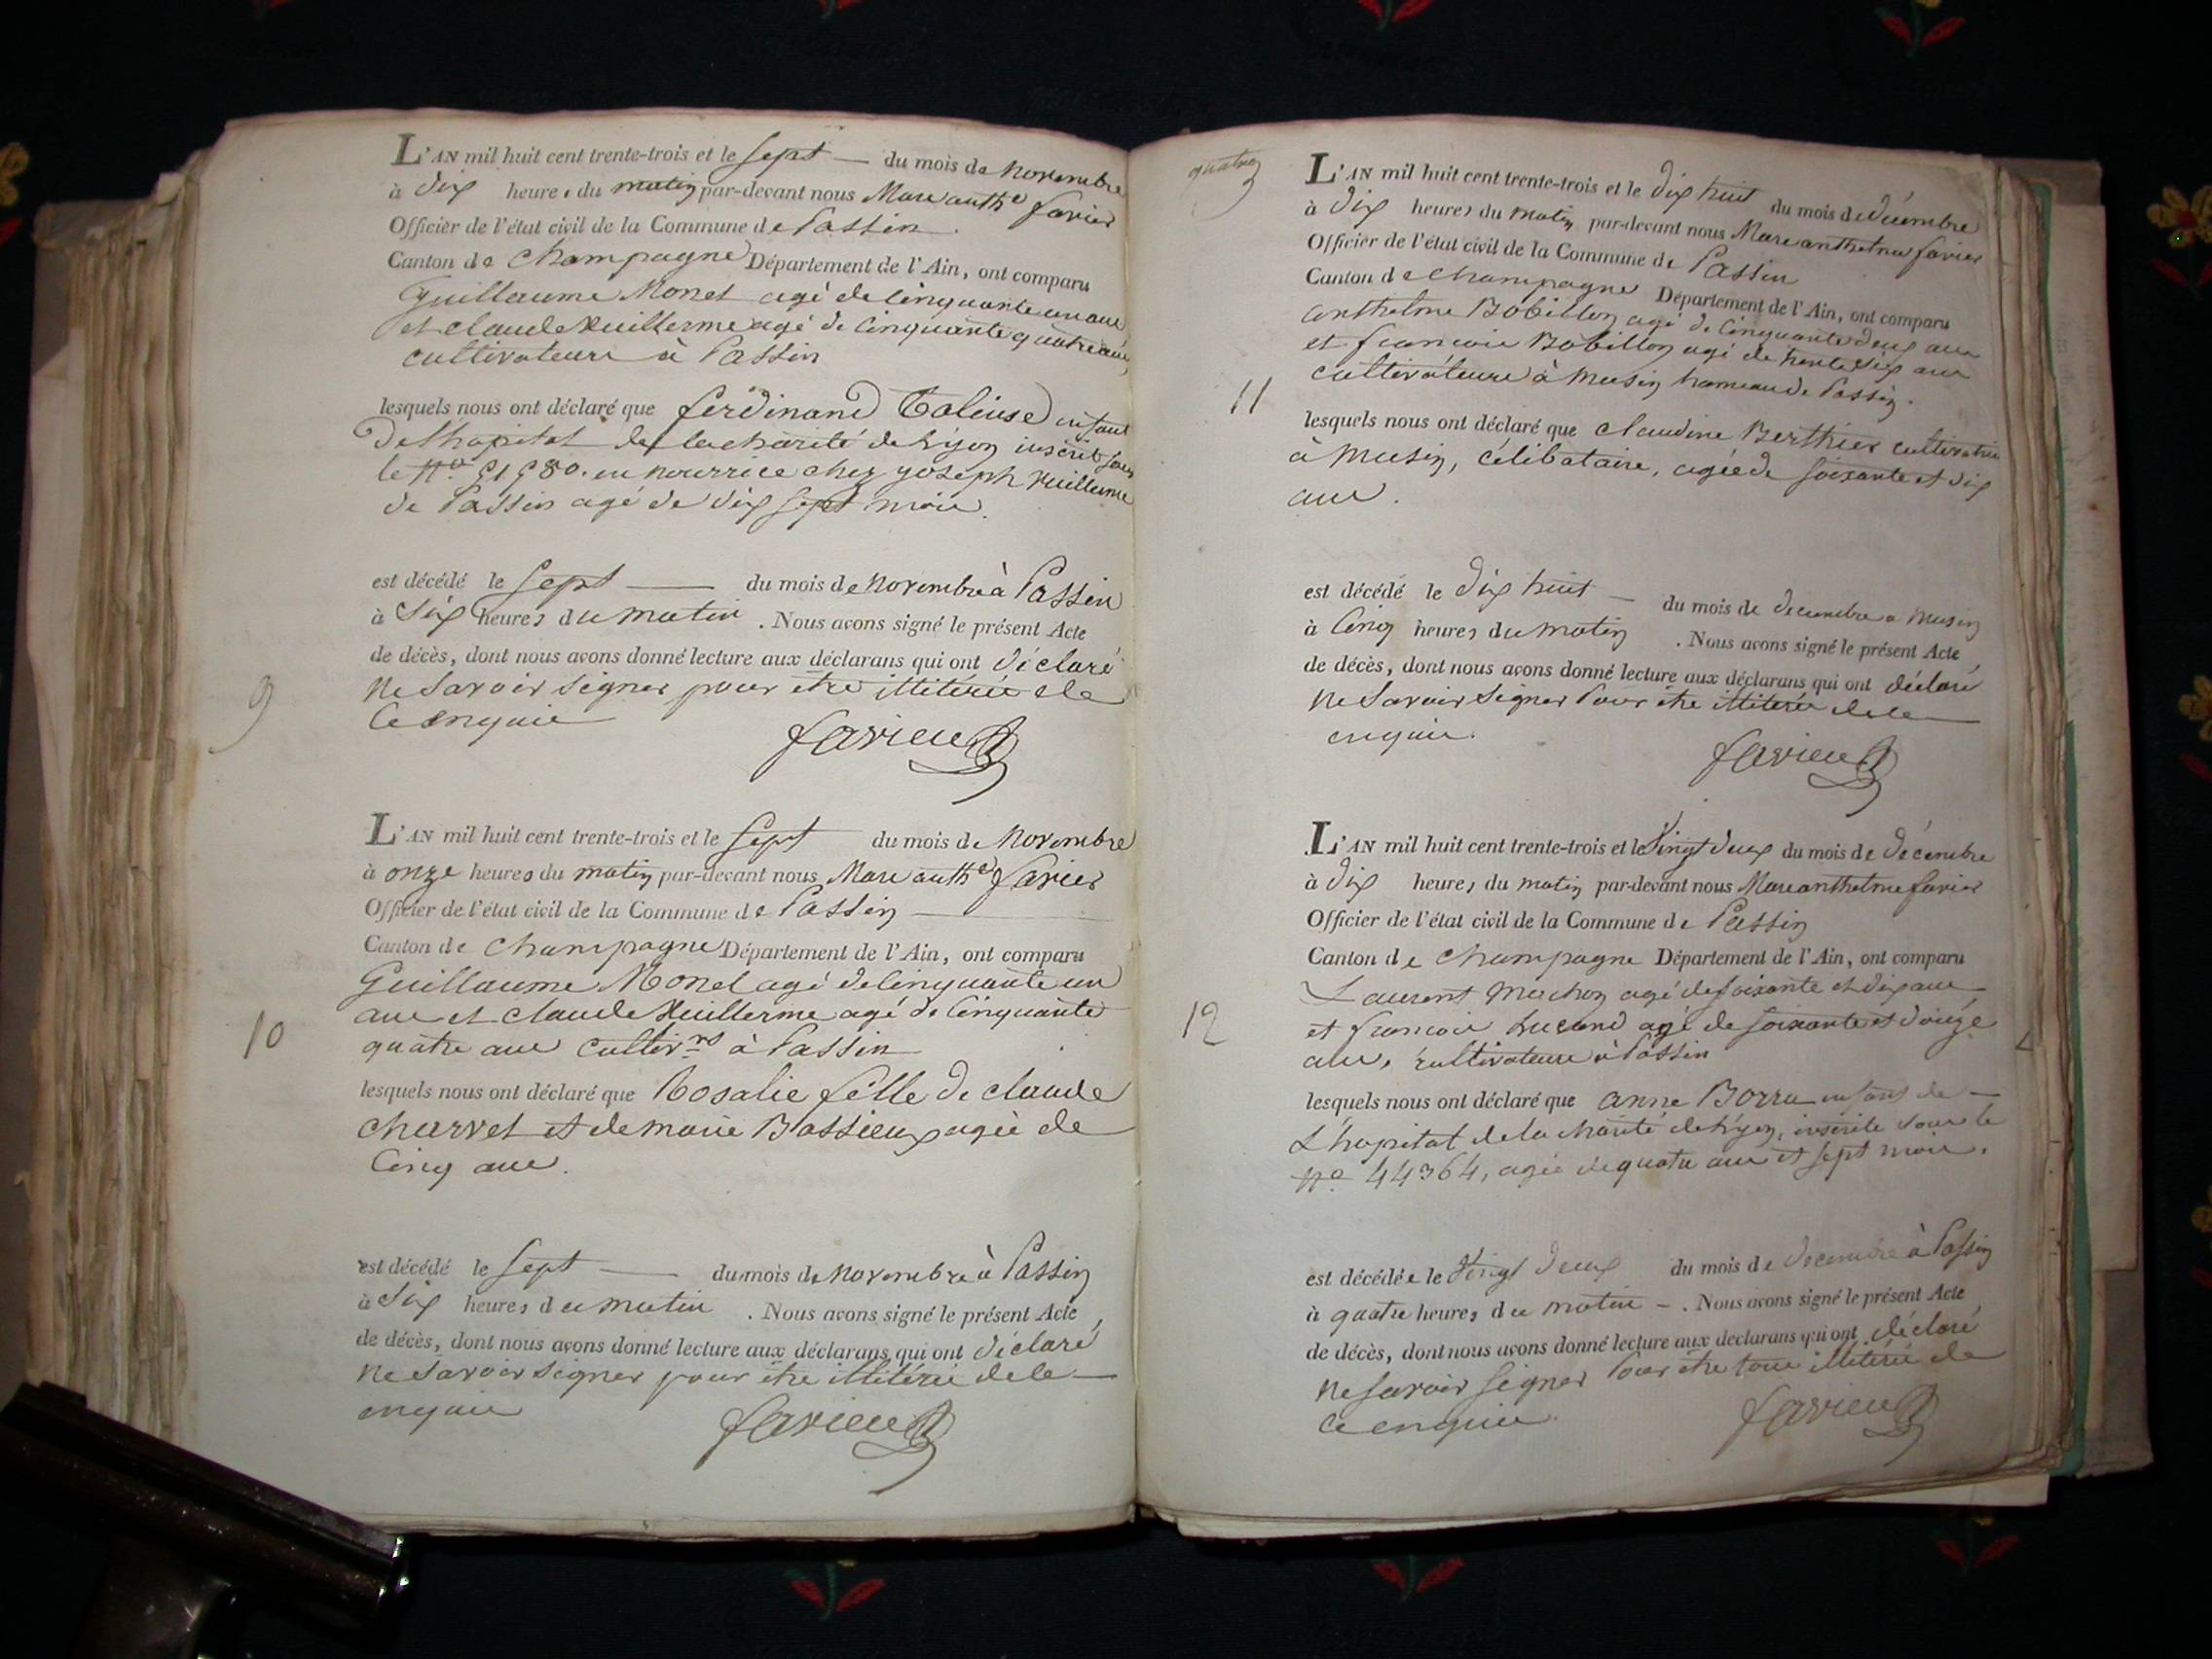 L'AN mil huit cent trente-trois et le sept — du mois de novembre
à dix heures du matin par-devant nous Marc anthe favier
Officier de l'état civil de la Commune de Passin
Canton de Champagne Département de l'Ain, ont comparu
Guillaume Monet agé de cinquante un ans
et claude Vuillerme agé de cinquante quatre ans
cultivateurs à Passin
lesquels nous ont déclaré que ferdinand enfant
De lhopital de la charité de Lyon inscrit sous
le No en nourrice chez joseph Vuillerme
de Passin agé de dix sept mois.
est décédé le sept — du mois de novembre à Passin
à Six heures du matin . Nous avons signé le présent Acte
de décès, dont nous avons donné lecture aux déclarans qui ont déclaré
ne Savoir signer pour etre illiterés de
ce enquis
favier
9
L'AN mil huit cent trente-trois et le Sept du mois de Novembre
à onze heures du matin par-devant nous Marc anthe favier
Officier de l'état civil de la Commune de Passin —
Canton de Champagne Département de l'Ain, ont comparu
Guillaume Monet agé de cinquante un
ans et claude Vuillerme agé de Cinquante
10
quatre ans cultivrs à Passin
lesquels nous ont déclaré que Rosalie fille de claude
charvet et de marie Bassieux agée de
Cinq ans.
est décédé le Sept — du mois de Novembre à Passin
à Six heures du matin . Nous avons signé le présent Acte
de décès, dont nous avons donné lecture aux déclarans qui ont déclaré
ne Savoir signer pour être illitérés de le —
enquis
favier
quatre
L'AN mil huit cent trente-trois et le dix huit du mois de décembre
à Dix heures du matin par-devant nous Marc anthelme favier
Officier de l'état civil de la Commune de Passin
Canton de Champagne Département de l'Ain, ont comparu
anthelme Bobillon agé de cinquante deux ans
et francois Bobillon agé de trente Six ans
cultivateurs à Musin hameau de Passin.
11
lesquels nous ont déclaré que claudine Berthier cultivatrice
à Musin, célibataire, agée de soixante et dix
ans.
est décédé le dix huit — du mois de decembre a Musin
à Cinq heures du matin . Nous avons signé le présent Acte
de décès, dont nous avons donné lecture aux déclarans qui ont déclaré
ne Savoir Signer Pour être illiterés de le —
enquis.
favier
L'AN mil huit cent trente-trois et le Vingt deux du mois de décembre
à Dix heures du matin par-devant nous Marc anthelme favier
Officier de l'état civil de la Commune de Passin
Canton de Champagne Département de l'Ain, ont comparu
Laurent Mochon agé de soixante et dix ans
12
et francois Lucand agé de soixante et douze
ans, cultivateurs à Passin
lesquels nous ont déclaré que anne Borra enfant de —
L'hopital de la charité de Lyon, inscrite sous le
No 44364, agée de quatre ans et sept mois.
est décédée le Vingt deux du mois de decembre à Passin
à quatre heures du matin — . Nous avons signé le présent Acte
de décès, dont nous avons donné lecture aux déclarans qui ont déclaré
ne savoir signer Pour être tous illitérés de
ce enquis.
favier